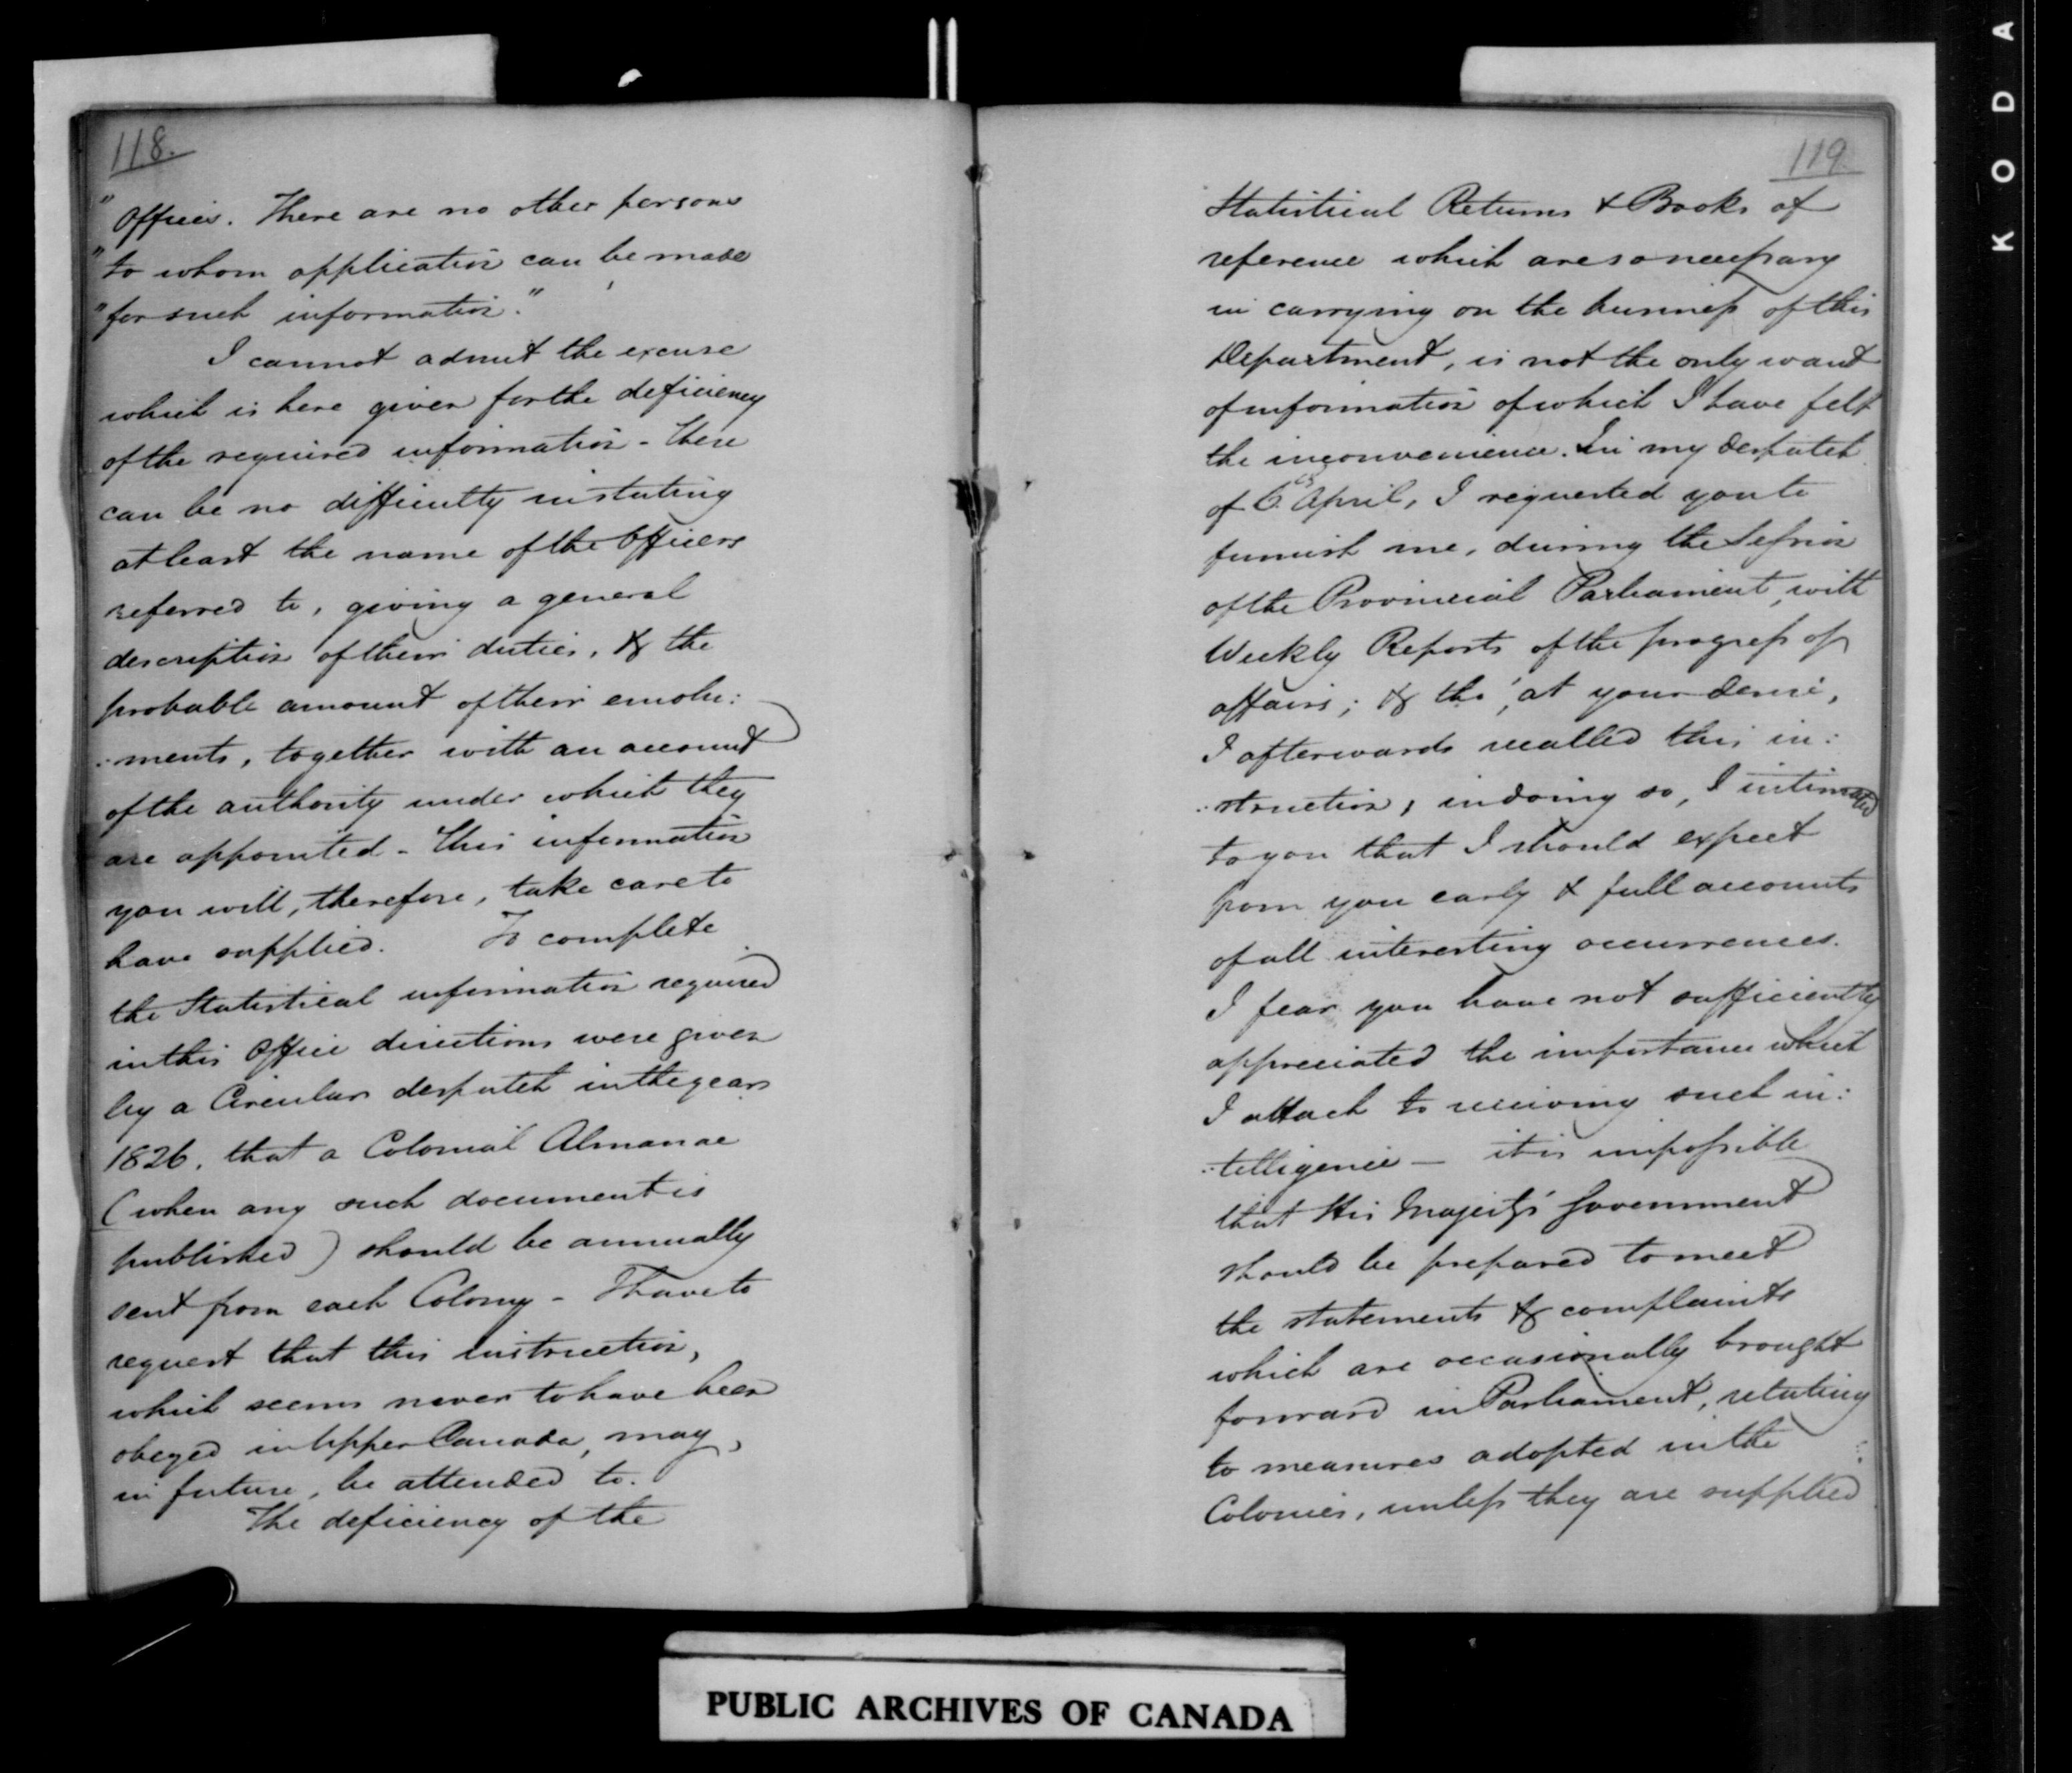 118.
"Offices. There are no other persons
"to whom application can be made
"for such information."
I cannot admit the excuse
which is here given for the deficiency
of the required information - there
can be no difficulty in stating
at least the name of the Officers
referred to, giving a general
description of their duties, & the
probable amount of their emolu:
:ments, together with an account
of the authority under which they
are appointed - This information
you will, therefore, take care to
have supplied. To complete
the Statistical information required
in this Office directions were given
by a Circular despatch in the year
1826, that a Colonial Almanac
(when any such document is
published) should be annually
sent from each Colony - I have to
request that this instruction,
which seems never to have been
obeyed in Upper Canada, may,
in future, be attended to.
The deficiency of the
119
Statistical Returns & Books of
reference which are so necessary
in carrying on the business of this
Department, is not the only want
of information of which I have felt
the inconvenience. In my Despatch
of 6 April, I requested you to
furnish me, during the Session
of the Provincial Parliament, with
Weekly Reports of the progress of
affairs; & tho', at your desire,
I afterwards recalled this in:
:struction, in doing so, I intimated
to you that I should expect
from you early & full accounts
of all interesting occurrences.
I fear you have not sufficiently
appreciated the importance which
I attach to receiving such in:
:telligence — it is impossible
that His Majesty's Government
should be prepared to meet
the statements & complaints
which are occasionally brought
forward in Parliament, relating
to measures adopted in the
Colonies, unless they are supplied
PUBLIC ARCHIVES OF CANADA
KODA